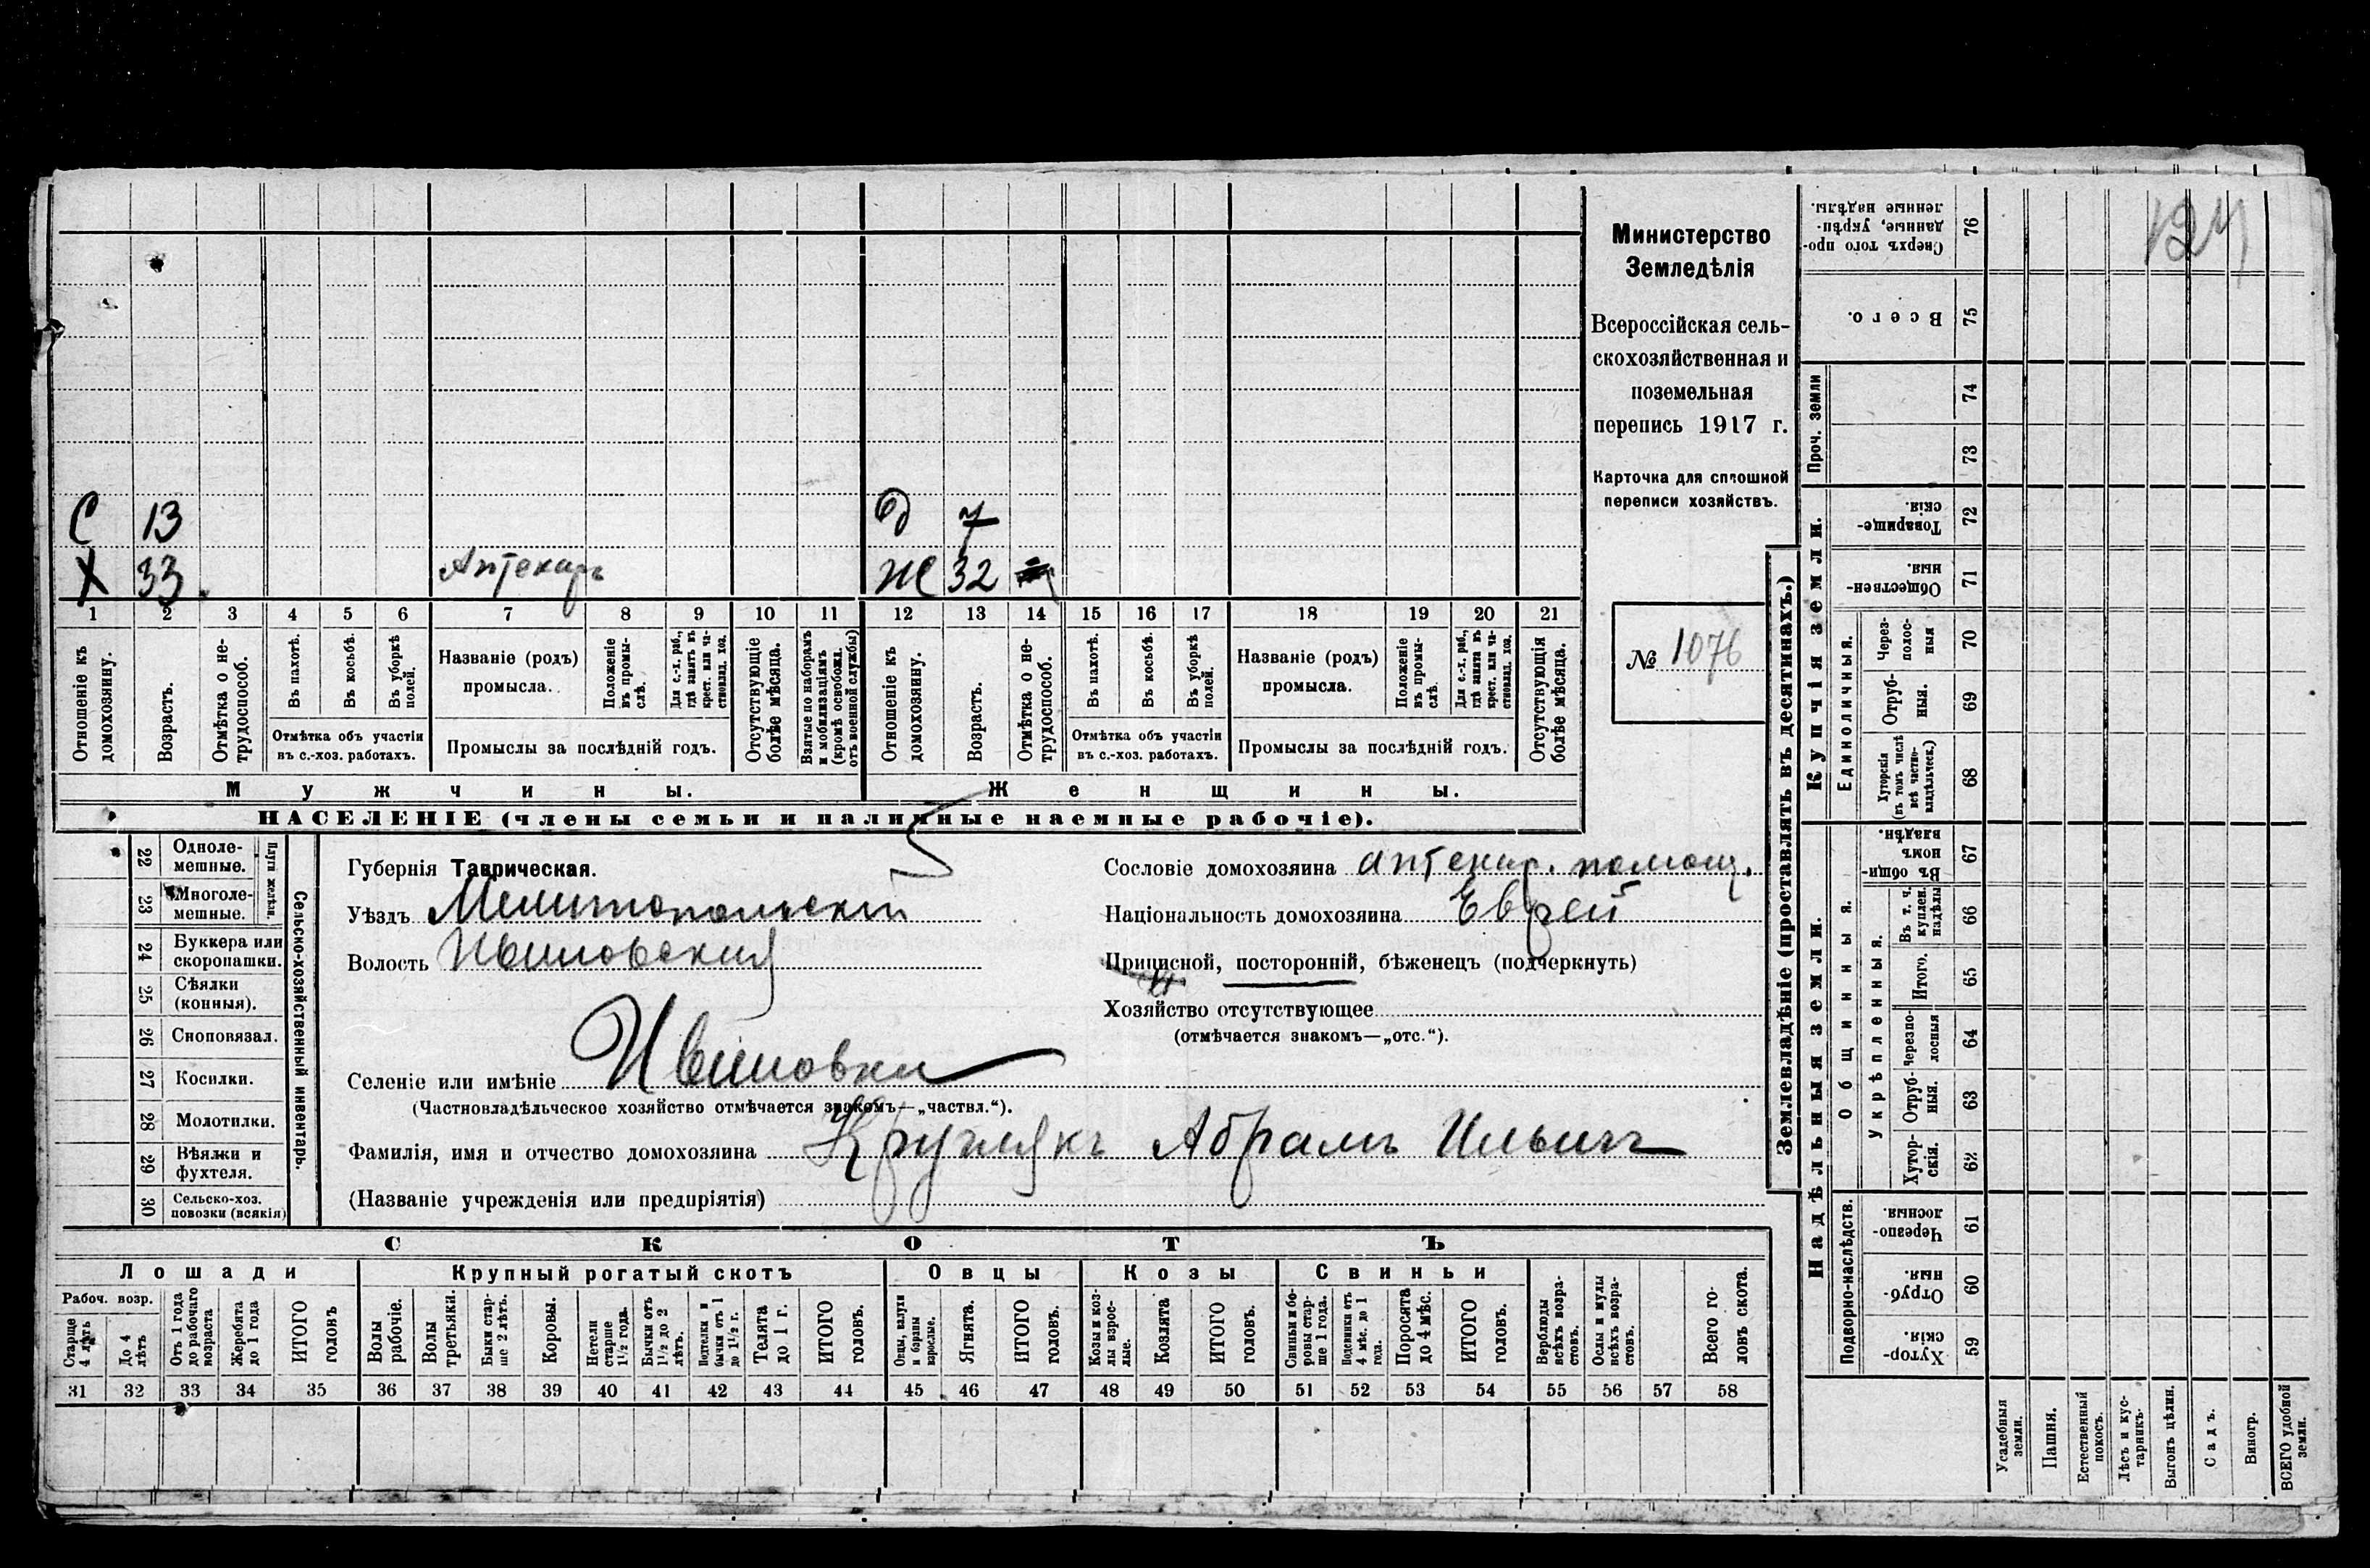 127
С 13 д 7
Х 33 Аптекарь Ж 32
1 2 3 4 5 6 7 8 9 10 11 12 13 14 15 16 17 18 19 20 21
Отношеніе къ домохозяину.
Возрастъ.
Отмѣтка о не-
трудоспособ.
Въ пахотѣ.
Въ косьбѣ.
Въ уборкѣ
полей.
Отмѣтка объ участіи
въ с.-хоз. работахъ.
Названіе (родъ)
промысла.
Положеніе
въ промы-
слѣ.
Для с.-х. раб.,
гдѣ занятъ въ
крест. или ча-
стновлад. хоз.
Промыслы за послѣдній годъ.
Отсутствующіе
болѣе мѣсяца.
Взятые по наборамъ
и мобилизаціямъ
(кромѣ освобожд.
отъ военной службы)
Отношеніе къ
домохозяину.
Возрастъ.
Отмѣтка о не-
трудоспособ.
Въ пахотѣ.
Въ косьбѣ.
Въ уборкѣ
полей.
Отмѣтка объ участіи
въ с.-хоз. работахъ.
Названіе (родъ)
промысла.
Положеніе
въ промы-
слѣ.
Для с.-х. раб.,
гдѣ занята въ
крест. или ча-
стновлад. хоз.
Промыслы за послѣдній годъ.
Отсутствующія
болѣе мѣсяца.
Мужчины. Женщины.
НАСЕЛЕНІЕ (члены семьи и наличные наемные рабочіе).
Министерство
Земледѣлія
Всероссійская сель-
скохозяйственная и
поземельная
перепись 1917 г.
Карточка для сплошной
переписи хозяйствъ.
№ 1076
22 Одноле-
мешные.
23 Многоле-
мешные.
Плуги желѣзн.
24 Буккера или
скоропашки.
25 Сѣялки
(конныя).
26 Сноповязал.
27 Косилки.
28 Молотилки.
29 Вѣялки и
фухтеля.
30 Сельско-хоз.
повозки (всякія)
Сельско-хозяйственный инвентарь.
Губернія Таврическая.
Уѣздъ Мелитопольскій
Волость Ивановская
Селеніе или имѣніе Ивановка
(Частновладѣльческое хозяйство отмѣчается знакомъ—„частвл.“).
Фамилія, имя и отчество домохозяина Круглякъ Абрамъ Ильичъ
(Названіе учрежденія или предпріятія)
Сословіе домохозяина аптекар. помощ.
Національность домохозяина Еврей
Приписной, посторонній, бѣженецъ (подчеркнуть)
Хозяйство отсутствующее
(отмѣчается знакомъ—„отс.“).
СКОТЪ
Лошади Крупный рогатый скотъ Овцы Козы Свиньи
Рабоч. возр.
Старше
4 лѣтъ
До 4
лѣтъ
Отъ 1 года
до рабочаго
возраста
Жеребята
до 1 года
ИТОГО
головъ
Волы
рабочіе.
Волы
третьяки.
Быки стар-
ше 2 лѣтъ.
Коровы.
Нетели
старше
1½ года.
Бычки отъ
1½ до 2
лѣтъ.
Подтелки и
бычки отъ 1
до 1½ г.
Телята
до 1 г.
ИТОГО
головъ.
Овцы, валухи
и бараны
взрослые.
Ягнята.
ИТОГО
головъ.
Козы и коз-
лы взрос-
лые.
Козлята
ИТОГО
головъ.
Свиньи и бо-
ровы стар-
ше 1 года.
Подсвинки отъ
4 мѣс. до 1
года.
Поросята
до 4 мѣс.
ИТОГО
головъ.
Верблюды
всѣхъ возра-
стовъ.
Ослы и мулы
всѣхъ возра-
стовъ.
Всего го-
ловъ скота.
31 32 33 34 35 36 37 38 39 40 41 42 43 44 45 46 47 48 49 50 51 52 53 54 55 56 57 58
Землевладѣніе (проставлять въ десятинахъ.)
Купчія земли.
Надѣльныя земли.
Проч. земли
Единоличныя.
Общинныя.
Укрѣпленныя.
Подворно-наслѣдств.
Сверхъ того про-
данные, укрѣп-
ленные надѣлы. 76
Всего. 75
74
73
Товарище-
скія. 72
Обществен-
ныя. 71
Через-
полос-
ныя 70
Отруб-
ныя. 69
Хуторскія
(въ томъ числѣ
всѣ частно-
владѣльческ.) 68
Въ общин-
номъ
владѣн. 67
Въ т. ч.
куплен.
надѣлы 66
Итого. 65
Черезпо-
лосныя 64
Отруб-
ныя. 63
Хутор-
скія. 62
Черезпо-
лосныя. 61
Отруб-
ныя. 60
Хутор-
скія. 59
Усадебныя
земли.
Пашня.
Естественный
покосъ.
Лѣсъ и кус-
тарникъ.
Выгонъ цѣлин.
Садъ.
Виногр.
ВСЕГО удобной
земли.